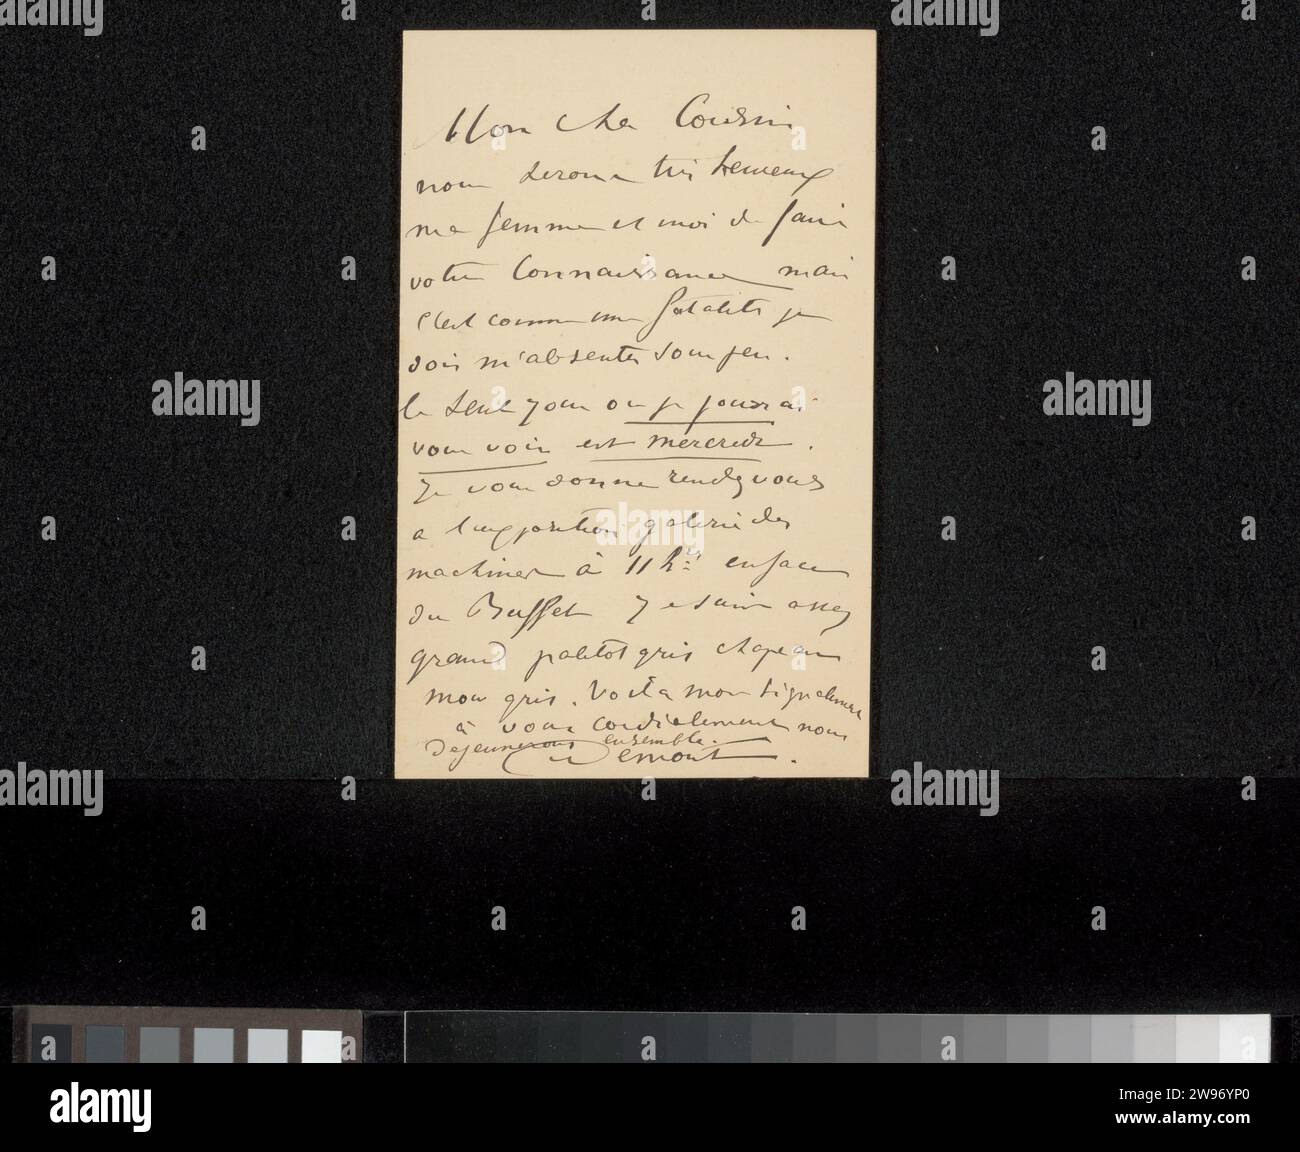 Mon cher Cousin
nous serons très heureux
ma femme et moi de faire
votre connaissance mais
c'est comme une fatalité je
dois m'absenter sous peu.
le seul jour ou je pourrai
vous voir est mercredi.
Je vous donne rendez vous
a l'exposition galerie des
machines à 11 hres en face
du Buffet Je suis assez
grand paletot gris chapeau
mou gris. Voila mon signalement
à vous cordialement nous
dejeunerons ensemble.
Demont.
alamy
Image ID: 2W96YP0
www.alamy.com